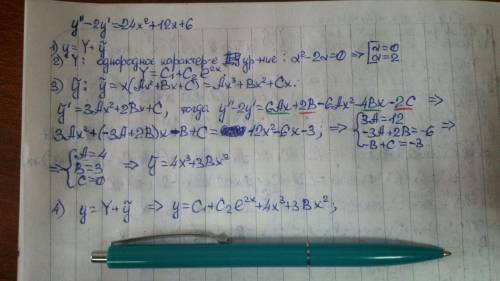 y''-2y'=24x²+12x+6
1) y=Y+ỹ
2) Y: однородное характер-е ур-ние: α²-2α=0 ⇒ [α=0 α=2
Y=C₁+C₂e^2x
3) ỹ: ỹ=x(Ax²+Bx+C)=Ax³+Bx²+Cx.
y'=3Ax²+2Bx+C, тогда y''-2y'=6Ax+2B-6Ax²-4Bx-2C
3Ax²+(-3A+2B)x-B+C= 12x²-6x-3, ⇒ {3A=12 -3A+2B=-6 -B+C=-3 ⇒
⇒ {A=4 B=3 C=0 ⇒ ỹ=4x³+3Bx²
4) y=Y+ỹ ⇒ y=C₁+C₂e^2x+4x³+3Bx²;